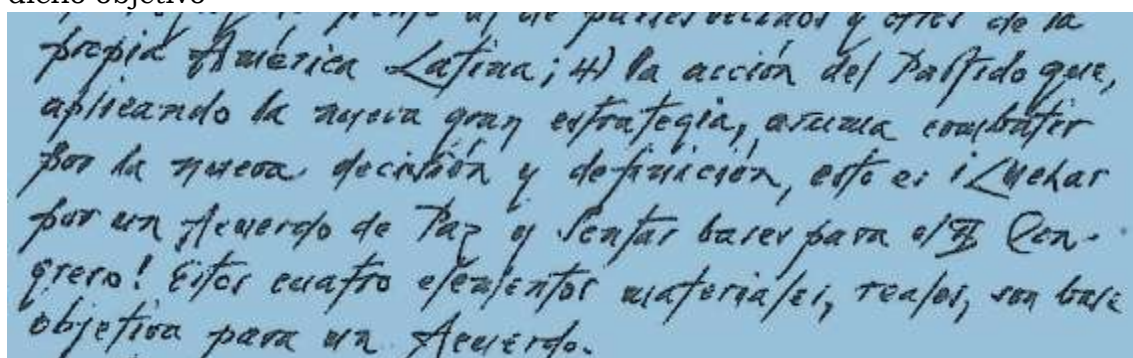 dicho objetivo
de países vecinos y otros de la
propia América Latina; 4) la acción del Partido que,
aplicando la nueva gran estrategia, asuma combatir
por la nueva decisión y definición, esto es ¡Luchar
por un Acuerdo de Paz y Sentar bases para el II Con-
greso! Estos cuatro elementos materiales, reales, son base
objetiva para un Acuerdo.